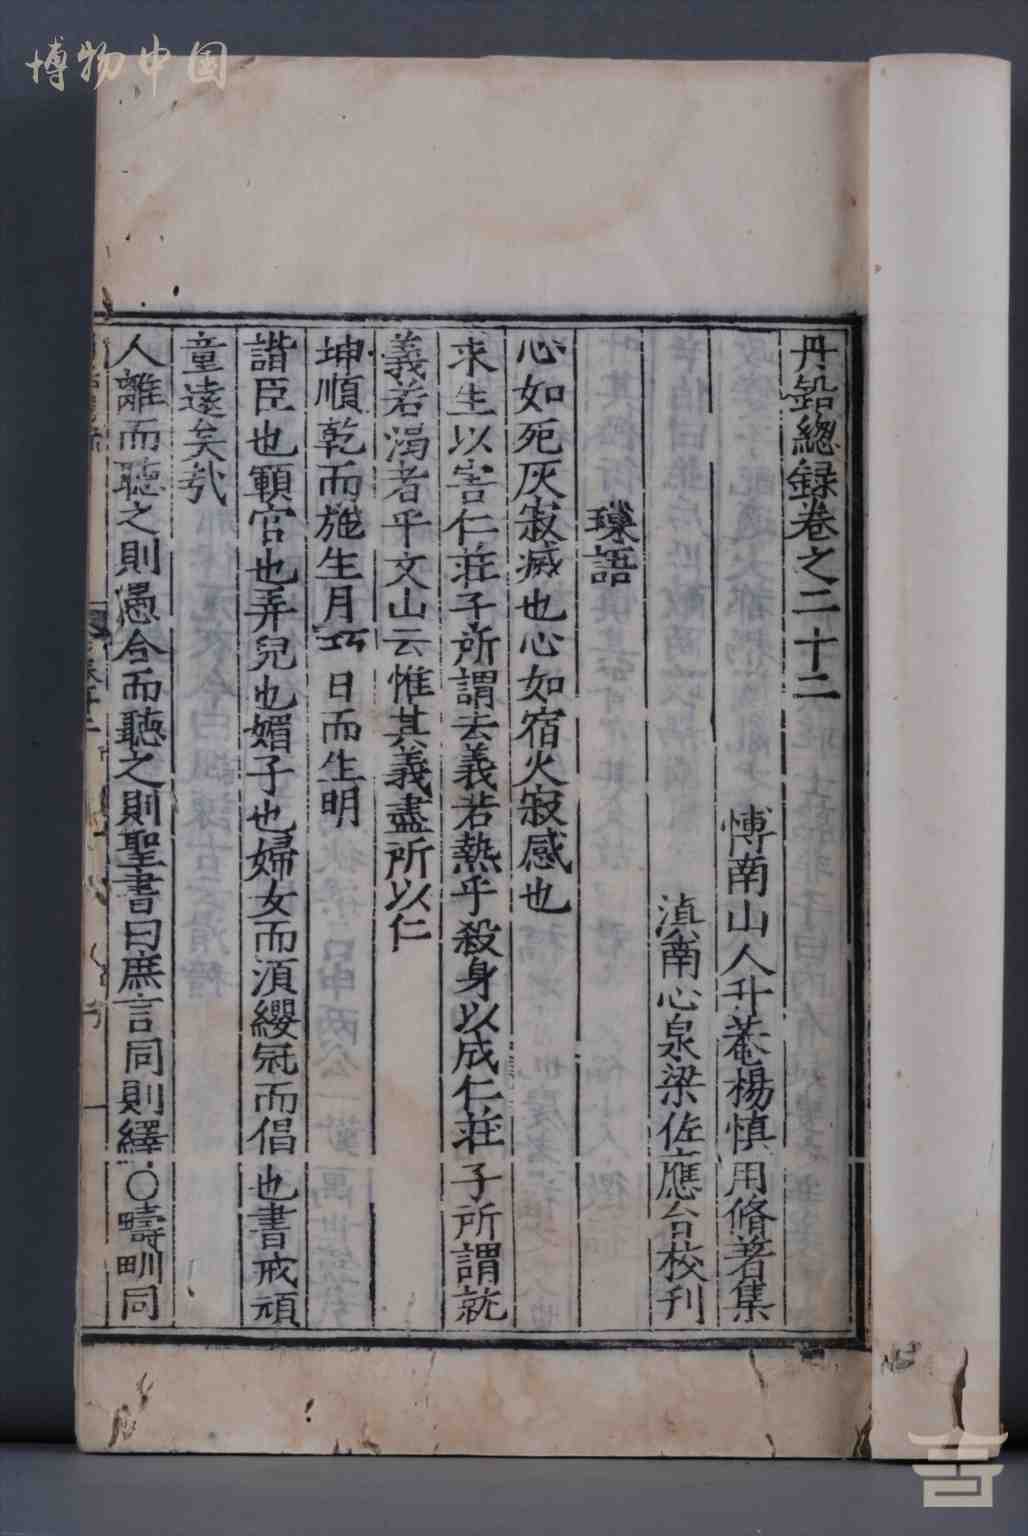 博物中国
丹鉛總録卷之二十二
博南山人升菴楊慎用脩著集
滇南心泉梁佐應台校刊
璅語
心如死灰寂滅也心如宿火寂感也
求生以害仁莊子所謂去義若熱乎殺身以成仁莊子所謂就
義若渴者乎文山云惟其義盡所以仁
坤順乾而施生月 日而生明
諧臣也顐官也弄兒也媚子也婦女而湏纓冠而倡也書戒頑
童遠矣㢤
人離而聽之則愚合而聽之則聖書曰庶言同則繹○疇畎同